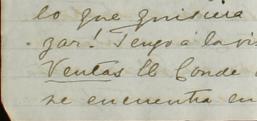 lo que quisiera
gar! Tengo á la vis
Ventas ll Conde
se encuentra en